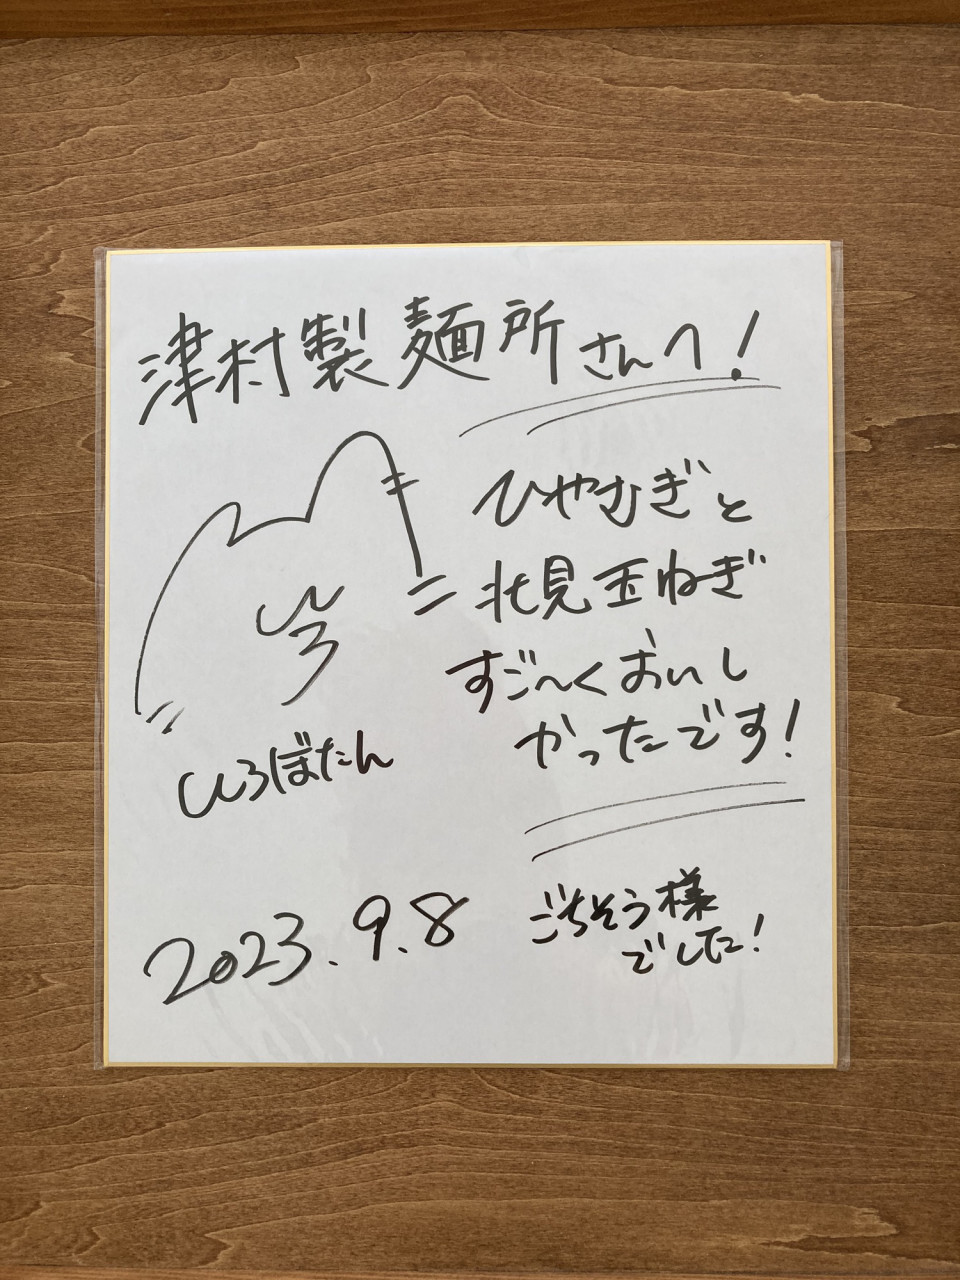 津村製麺所さんへ!
ひやむぎと
北見玉ねぎ
すご〜くおいし
かったです!
しろ
しろぼたん
2023.9.8
ごちそう様
でした!